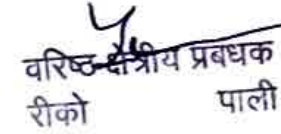 वरिष्ठ क्षेत्रीय प्रबधक
रीको पाली